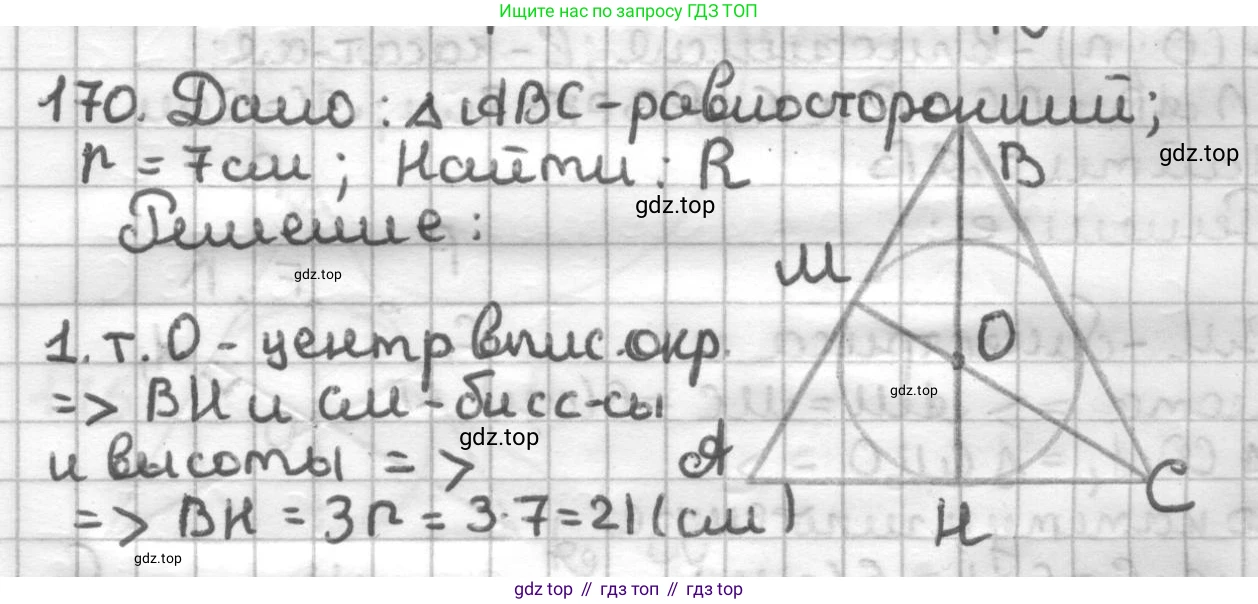 Ищите нас по запросу ГДЗ ТОП
170. Дано: △ABC - равносторонний;
r = 7см; Найти: R
Решение:
1. т. O - центр впис. окр.
=> BH и CM - бисс-сы
и высоты =>
=> BH = 3r = 3·7=21(см)
B
M
O
A
C
H
gdz.top
gdz.top
gdz.top
gdz.top
gdz.top
gdz.top
gdz top // гдз топ // gdz top